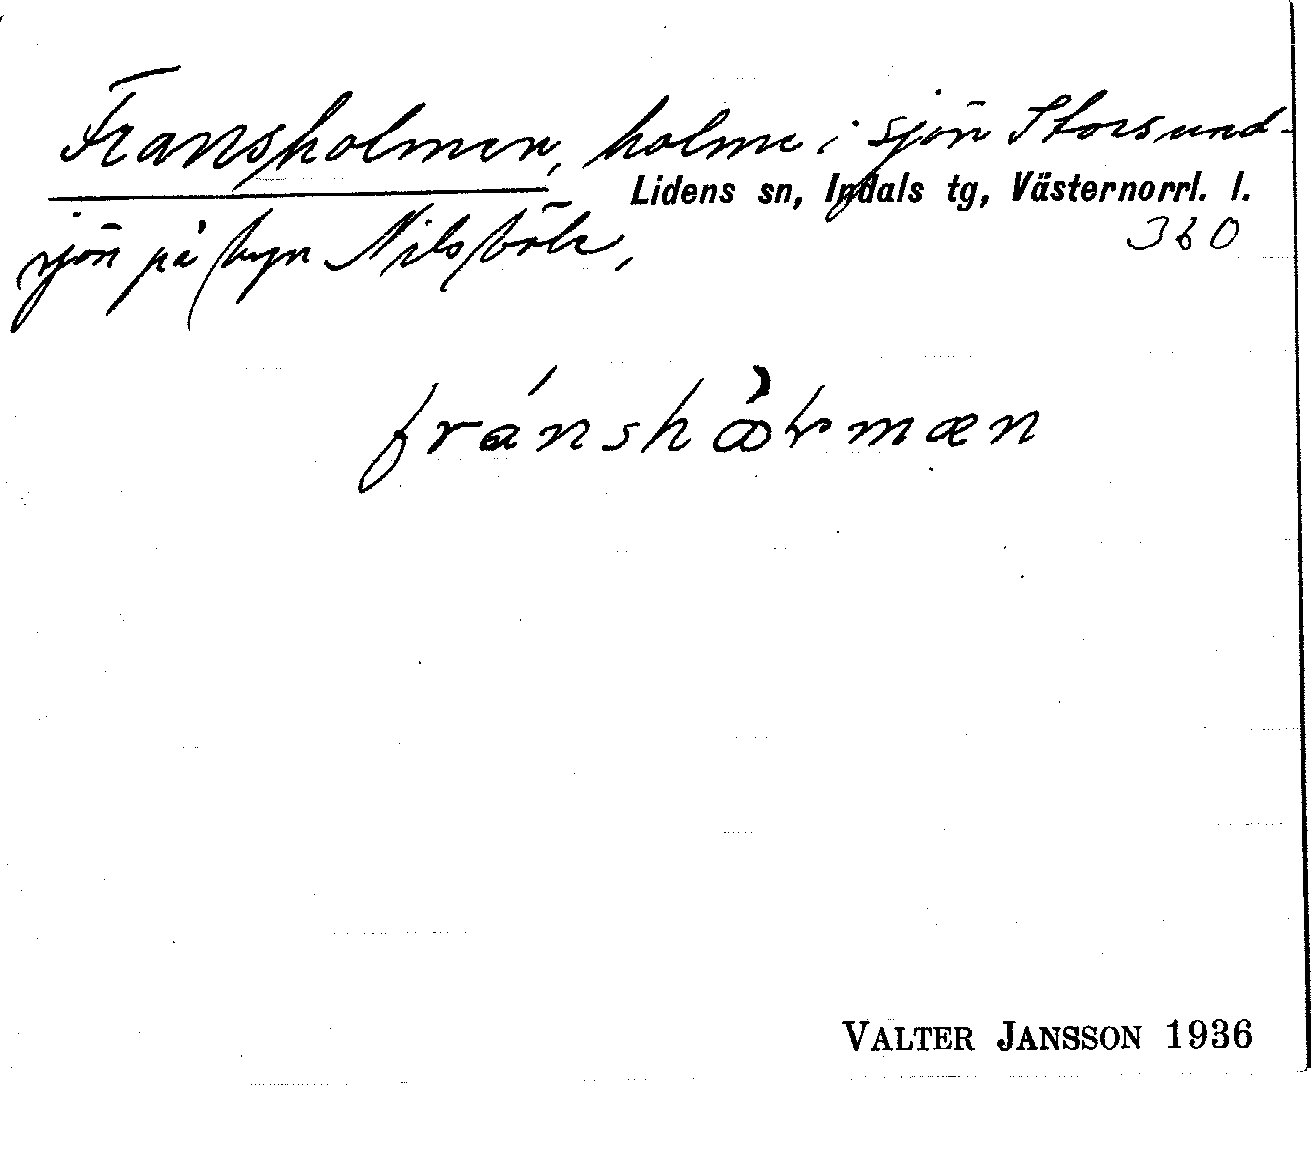 Fransholmen, holme i sjön Storsund-
Lidens sn, Indals tg, Västernorrl. l.
sjön på byn Nilsböle,
360
VALTER JANSSON 1936